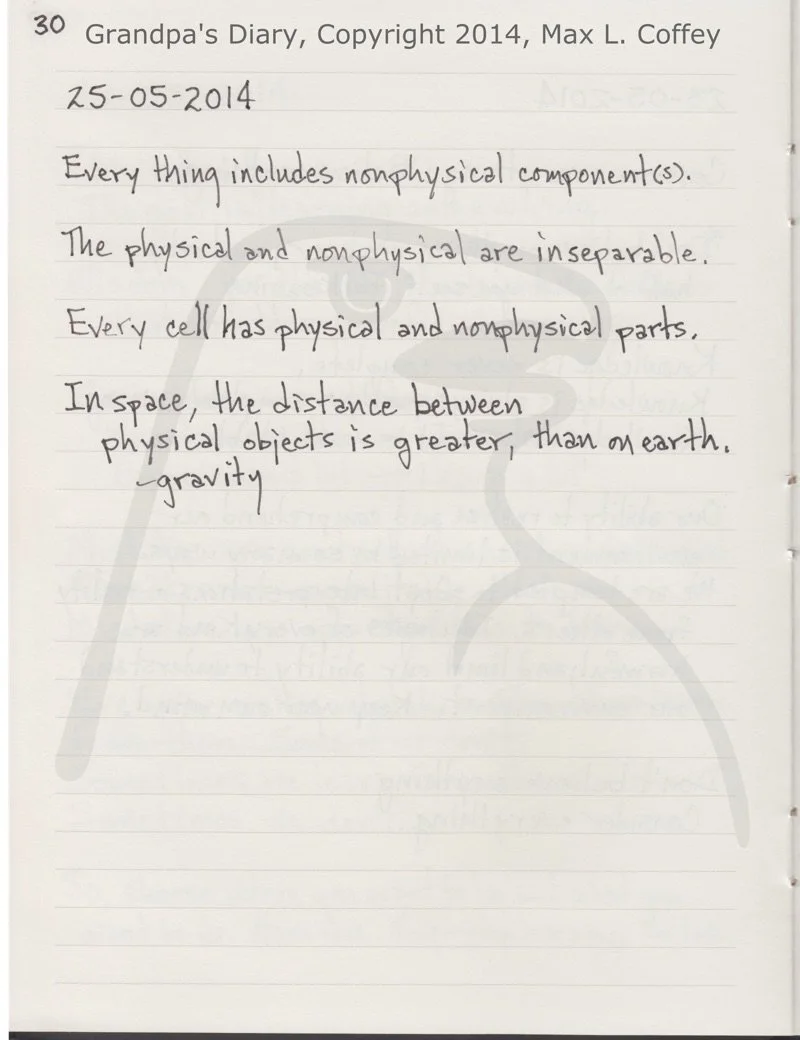 30 Grandpa's Diary, Copyright 2014, Max L. Coffey
25-05-2014
Every thing includes nonphysical component(s).
The physical and nonphysical are inseparable.
Every cell has physical and nonphysical parts.
In space, the distance between
physical objects is greater, than on earth.
-gravity